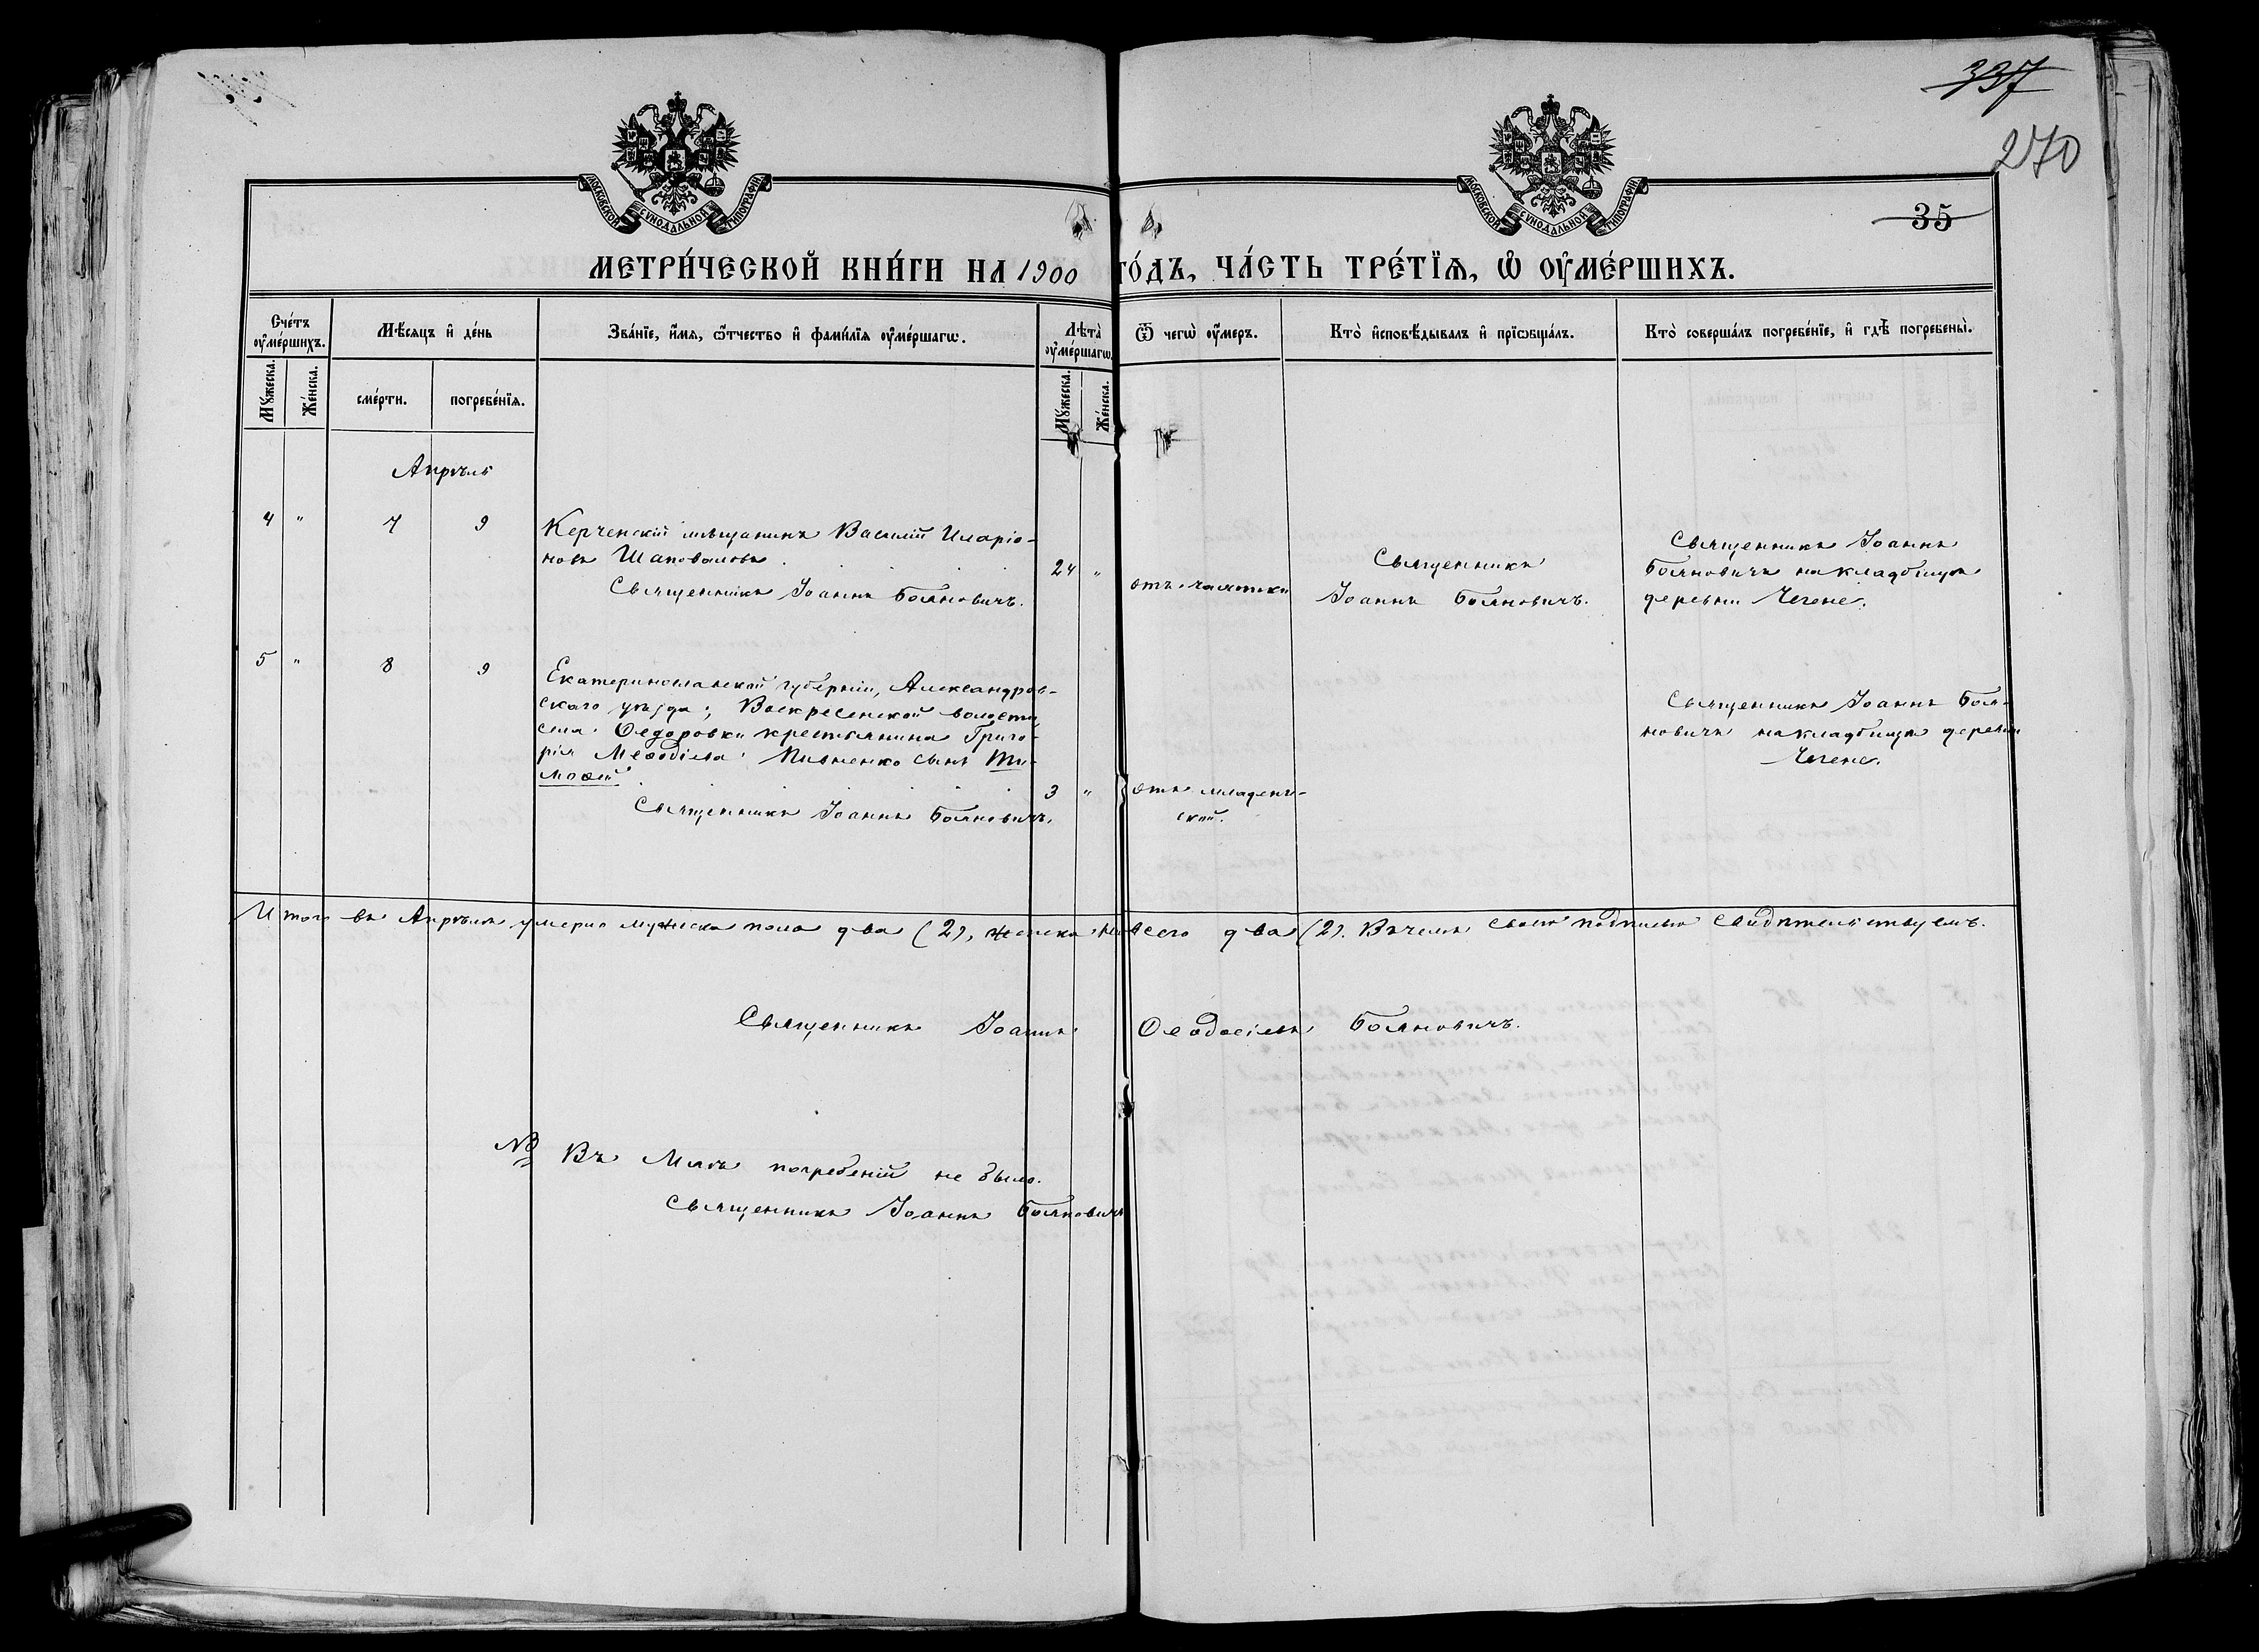 337
270
35
МОСКОВСКОЙ СѴНОДАЛЬНОЙ ТИПОГРАФІИ
МОСКОВСКОЙ СѴНОДАЛЬНОЙ ТИПОГРАФІИ
МЕТРИ́ЧЕСКОЙ КНИ́ГИ НА 1900 ГО́ДЪ, ЧА́СТЬ ТРЕ́ТІѦ, Ѡ҆ ОУ҆МЕ́РШИХЪ.
Сче́тъ оу҆ме́ршихъ.
Мꙋ́жеска.
Же́нска.
Мѣ́сяцъ и҆ де́нь
сме́рти.
погребе́нїѧ.
Зва́нїе, и҆́мя, ѻ҆́тчество и҆ фами́лїѧ оу҆ме́ршагѡ.
Лѣ́та оу҆ме́ршагѡ.
Мꙋ́жеска.
Же́нска.
Ѿ чегѡ̀ оу҆́меръ.
Кто̀ и҆сповѣ́дывалъ и҆ прїѡбща́лъ.
Кто̀ соверша́лъ погребе́нїе, и҆ гдѣ̀ погребены̀.
Апрѣль
4 " 7 9
Керченскій мѣщанинъ Василій Иларіо-
новъ Шаповаловъ
24 "
Священникъ Іоаннъ Бояновичъ.
отъ чахотки
Священникъ
Іоаннъ Бояновичъ.
Священникъ Іоаннъ
Бояновичъ на кладбищѣ
деревни Чегене.
5 " 8 9
Екатеринославской губерніи, Александров-
скаго уѣзда, Воскресенской волости
села Ѳедоровки крестьянина Григо-
рія Меѳодіева Пивненко сынъ Ти-
моѳей
3 "
Священникъ Іоаннъ Бояновичъ.
отъ младенче-
ской.
Священникъ Іоаннъ Боя-
новичъ на кладбищѣ деревни
Чегене.
Итого въ Апрѣлѣ умерло мужеска пола два (2), женска всего два (2). Въ чемъ своею подписью свидѣтельствуемъ.
Священникъ Іоаннъ Ѳеодосіевъ Бояновичъ.
NB Въ Маѣ погребеній не было.
Священникъ Іоаннъ Бояновичъ